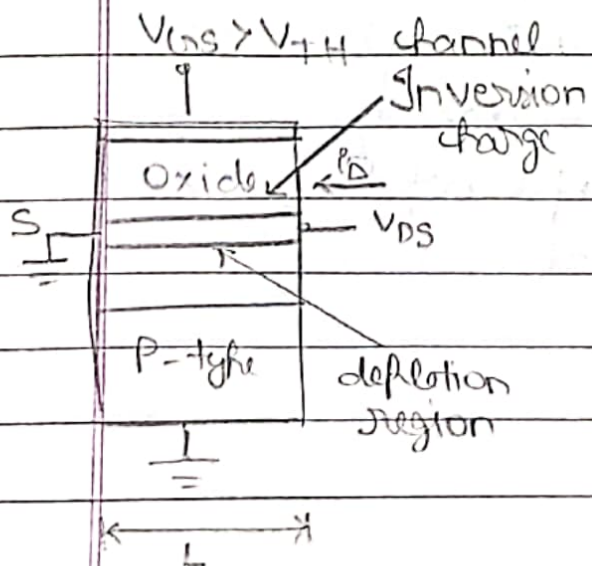 VGS > VTH channel
Inversion
charge
Oxide
iD
S
VDS
P-type
depletion
region
L